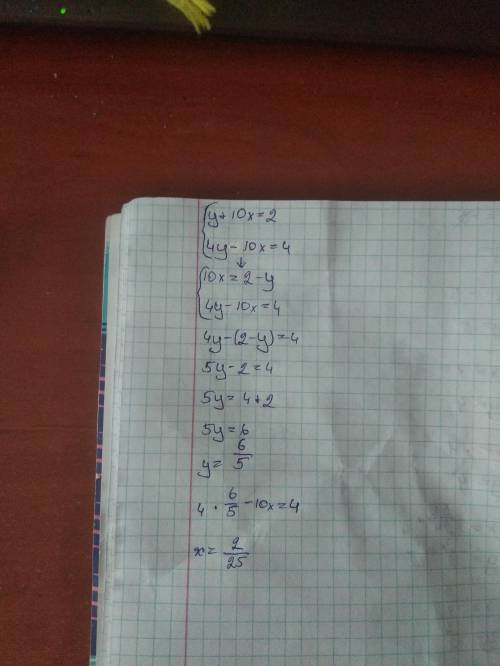 {y+10x=2
4y-10x=4
↓
{10x=2-y
4y-10x=4
4y-(2-y)=4
5y-2=4
5y=4+2
5y=6
y=6/5
4·6/5-10x=4
x=2/25